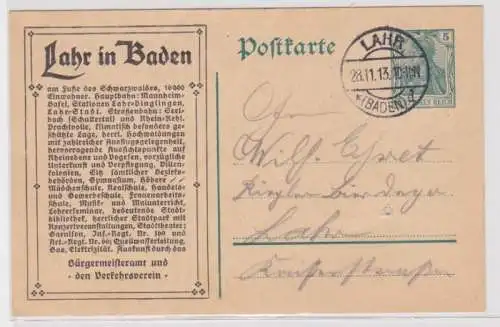 Lahr in Baden
am Fuße des Schwarzwaldes, 16000
Einwohner. Hauptbahn: Mannheim-
Basel, Stationen Lahr-Dinglingen,
Lahr-Stadt. Straßenbahn: Seel-
bach (Schuttertal) und Rhein-Kehl.
Prachtvolle, klimatisch besonders ge-
schützte Lage, herrl. Hochwaldungen
mit zahlreicher Ausflugsgelegenheit,
hervorragende Aussichtspunkte auf
Rheinebene und Vogesen, vorzügliche
Unterkunft und Verpflegung, Villen-
kolonien, Sitz sämtlicher Bezirks-
behörden, Gymnasium, Höhere
Mädchenschule, Realschule, Handels-
und Gewerbeschule, Frauenarbeits-
schule, Musik- und Malunterricht,
Lehrerseminar, bedeutende Stadt-
bibliothek, herrlicher Stadtpark mit
Konzertveranstaltungen, Stadttheater;
Garnison, Inf.-Regt. Nr. 169 und
Art.-Regt. Nr. 66; Quellwasserleitung,
Gas, Elektrizität. Auskunft durch das
Bürgermeisteramt und
- den Verkehrsverein -
Postkarte
LAHR
28.11.13.
(BADEN)
5
Wilh.
Lahr
Kaiserstraße